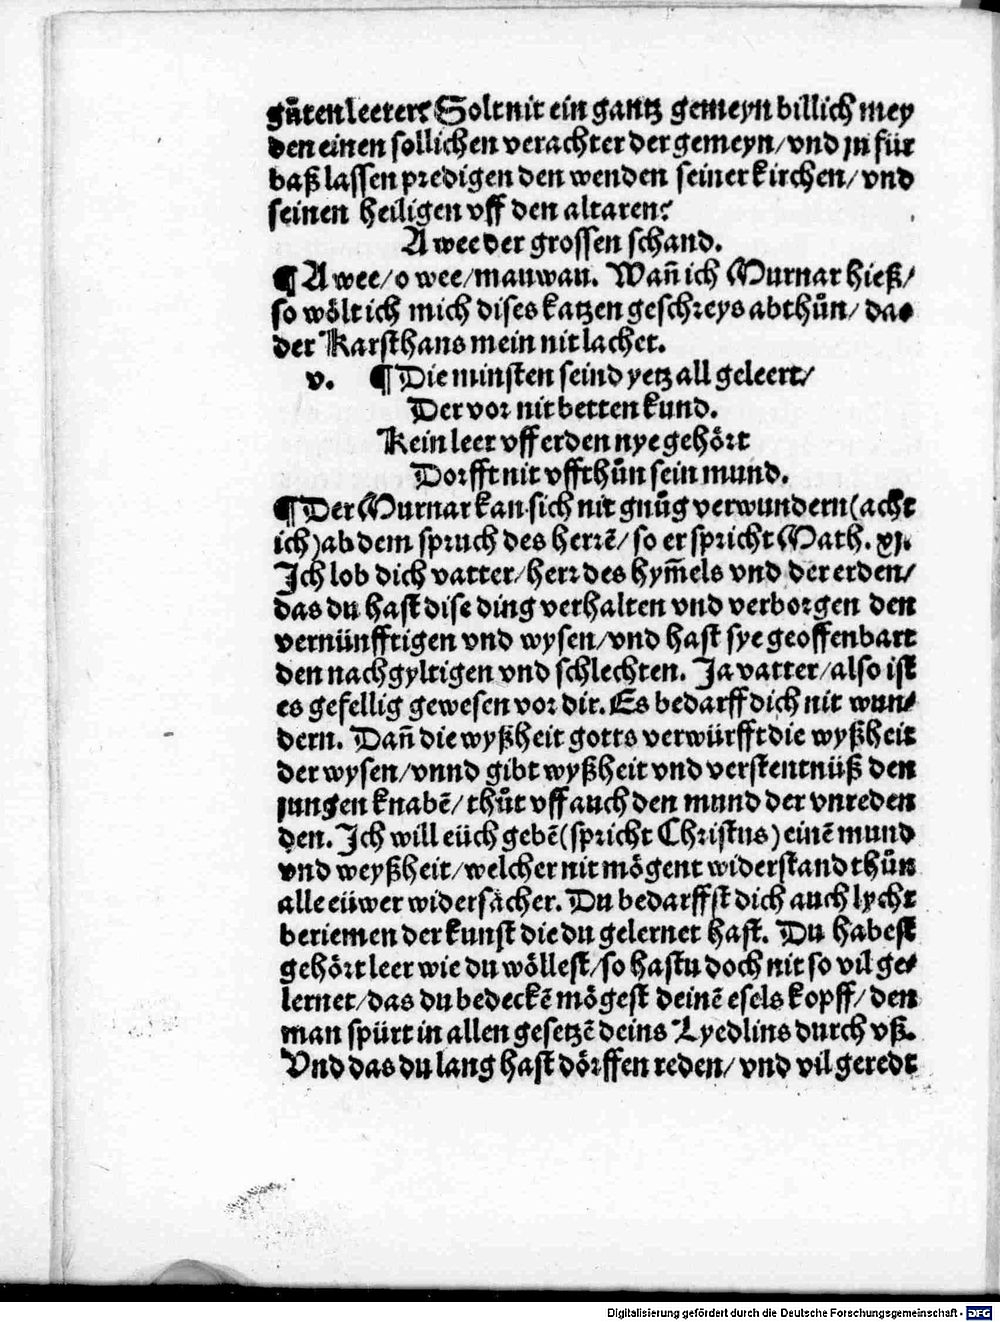 gůten leerer? Solt nit ein gantz gemeyn billich mey
den einen sollichen verachter der gemeyn/vnd jn für
baß lassen predigen den wenden seiner kirchen/vnd
seinen heiligen vff den altaren?
A wee der grossen schand.
¶ A wee/o wee/mauwau. Wañ ich Murnar hieß/
so wölt ich mich dises katzen geschreys abthůn/das
der Karsthans mein nit lachet.
v. ¶ Die minsten seind yetz all geleert/
Der vor nit betten kund.
Kein leer vff erden nye gehört
Dorfft nit vffthůn sein mund.
¶ Der Murnar kan sich nit gnůg verwundern(acht
ich)ab dem spruch des herrē/so er spricht Math. xj.
Ich lob dich vatter/herr des hym̄els vnd der erden/
das du hast dise ding verhalten vnd verborgen den
vernünfftigen vnd wysen/vnd hast sye geoffenbart
den nachgyltigen vnd schlechten. Ja vatter/also ist
es gefellig gewesen vor dir. Es bedarff dich nit wun/
dern. Dañ die wyßheit gotts verwürfft die wyßheit
der wysen/vnnd gibt wyßheit vnd verstentnüß den
jungen knabē/thůt vff auch den mund der vnreden
den. Ich will eüch gebē(spricht Christus)einē mund
vnd weyßheit/welcher nit mögent widerstand thůn
alle eüwer widersächer. Du bedarffst dich auch lycht
beriemen der kunst die du gelernet hast. Du habest
gehört leer wie du wöllest/so hastu doch nit so vil ge/
lernet/das du bedeckē mögest deinē esels kopff/den
man spürt in allen gesetzē deins Lyedlins durch vß.
Vnd das du lang hast dörffen reden/vnd vil geredt
Digitalisierung gefördert durch die Deutsche Forschungsgemeinschaft - DFG